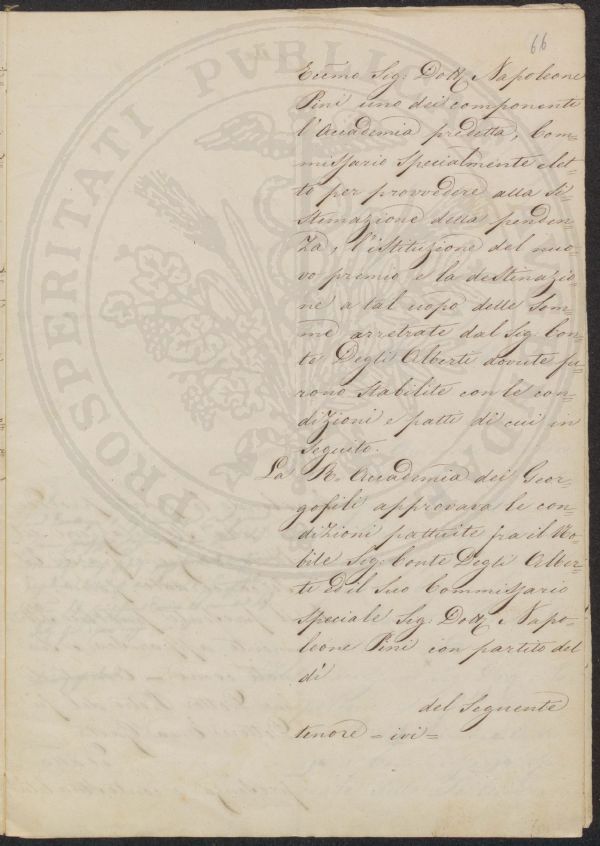 66
Eccmo Sig: Dott. Napoleone
Pini uno dei componenti
l'Accademia predetta, Com=
missario Specialmente elet=
to per provvedere alla Si=
stemazione della penden=
za, l'istituzione del nuo=
vo premio, e la destinazio=
ne a tal uopo delle Som=
me arretrate dal Sig. Con=
te Degli Alberti dovute fu=
rono stabilite con le con=
dizioni e patti di cui in
Seguito.
La R. Accademia dei Geor=
gofili approvava le con=
dizioni pattuite fra il No=
bile Sig: Conte Degli Alber=
ti ed il Suo Commissario
Speciale Sig: Dott. Napo=
leone Pini con partito del
dì
del Seguente
tenore = ivi =
PROSPERITATI PUBLIC